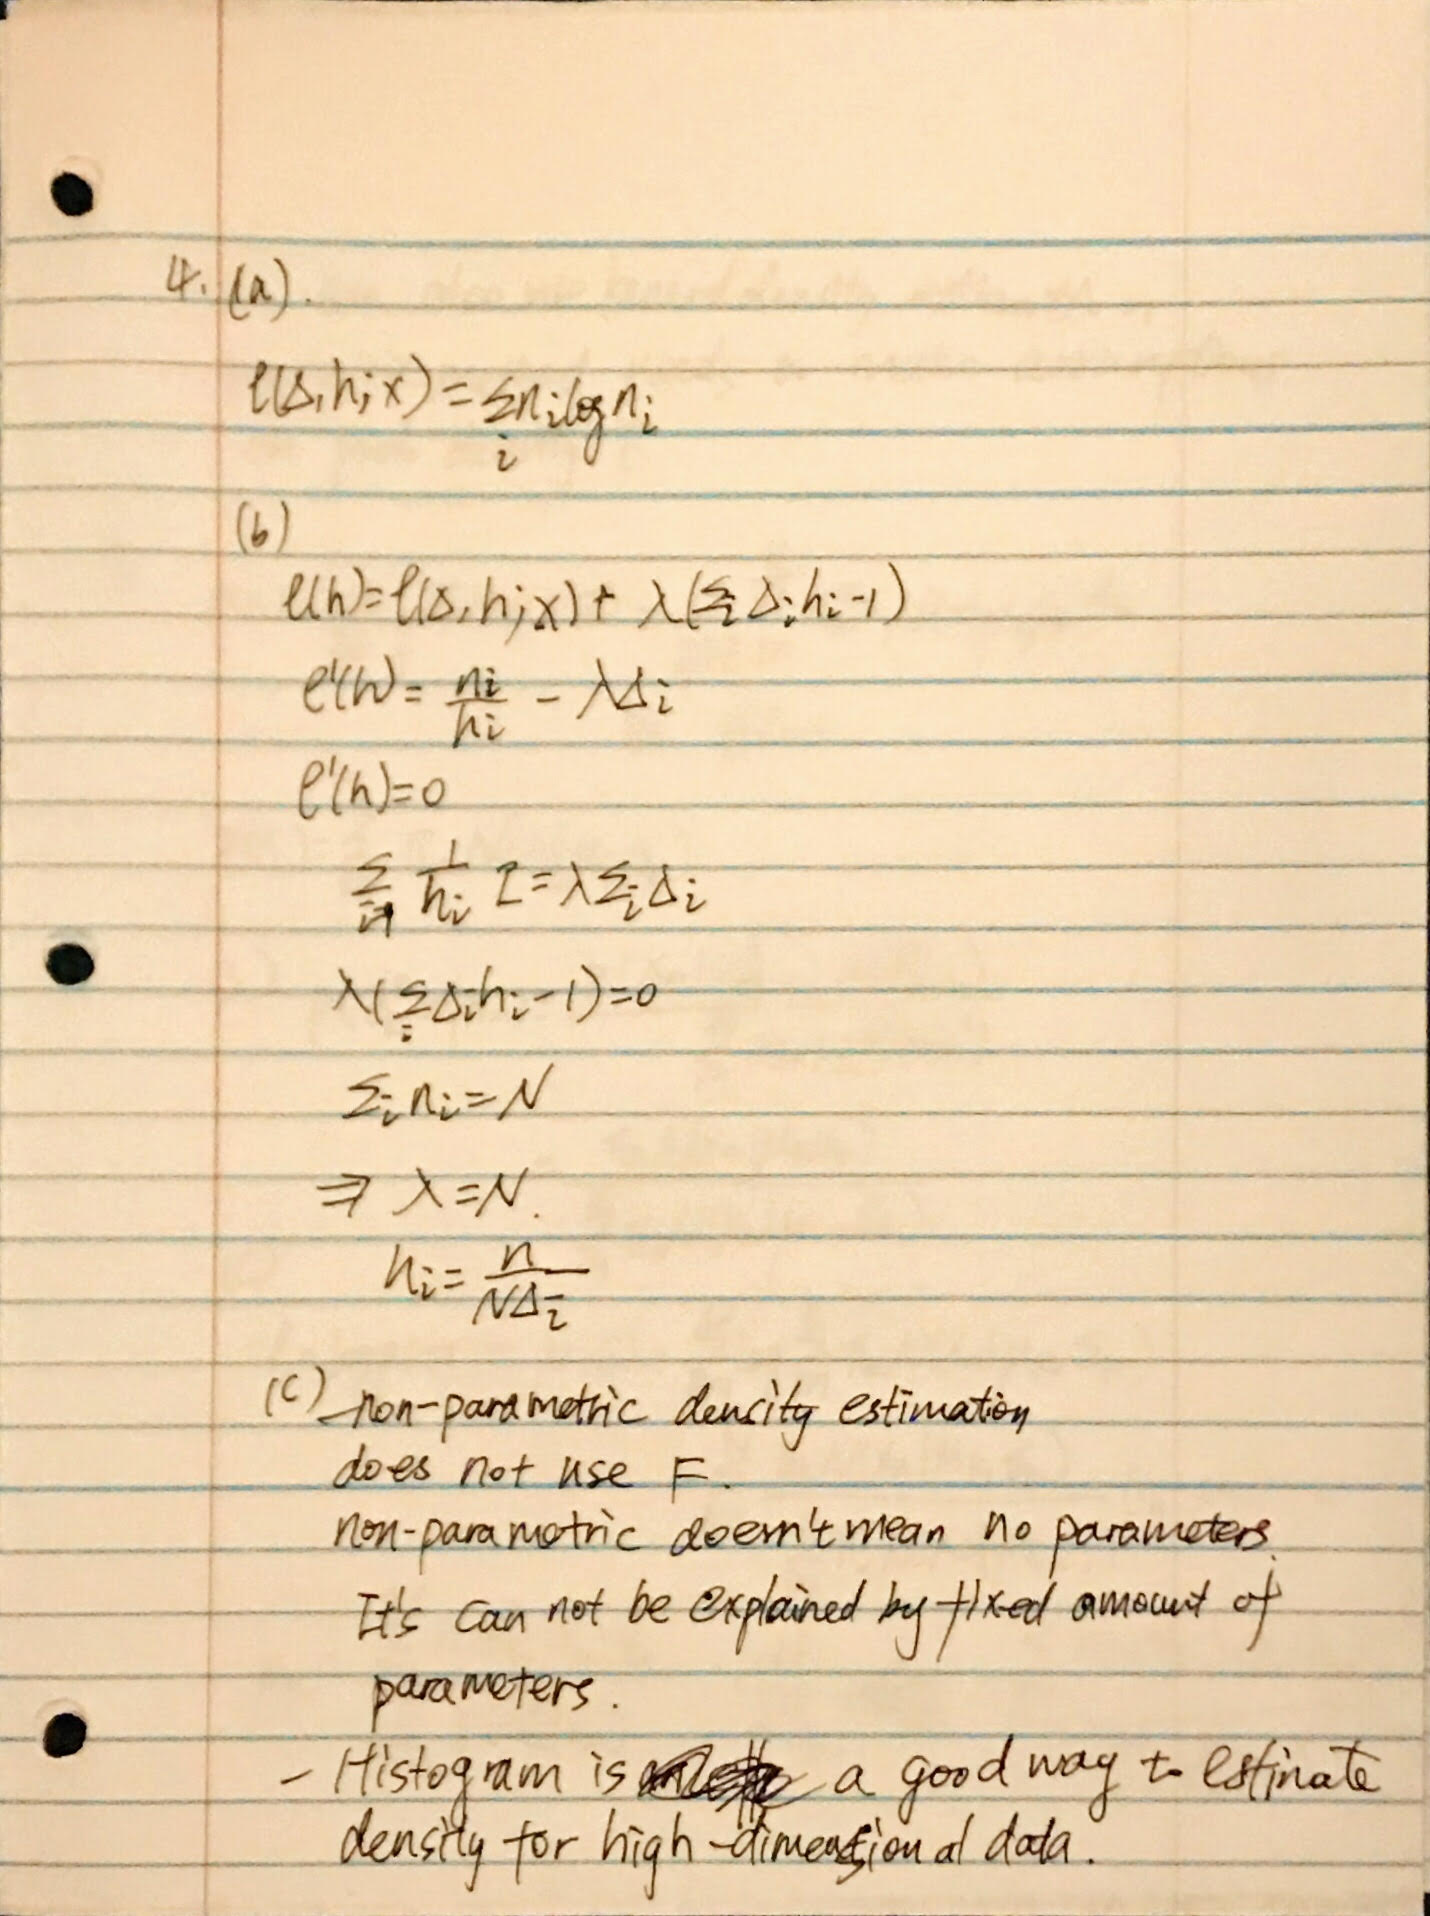 4. (a).
ℓ(Δ,h;x) = Σ_i n_i log n_i
(b)
ℓ(h) = ℓ(Δ,h;x) + λ(Σ_i Δ_i h_i - 1)
ℓ'(h) = n_i/h_i - λΔ_i
ℓ'(h) = 0
1/h_i = λ Σ_i Δ_i
λ(Σ_i Δ_i h_i - 1) = 0
Σ_i n_i = N
⇒ λ = N.
h_i = n/(NΔ_i)
(c) non-parametric density estimation
does not use F.
non-parametric doesn't mean no parameters.
It's can not be explained by fixed amount of
parameters.
- Histogram is a good way to estimate
density for high-dimensional data.